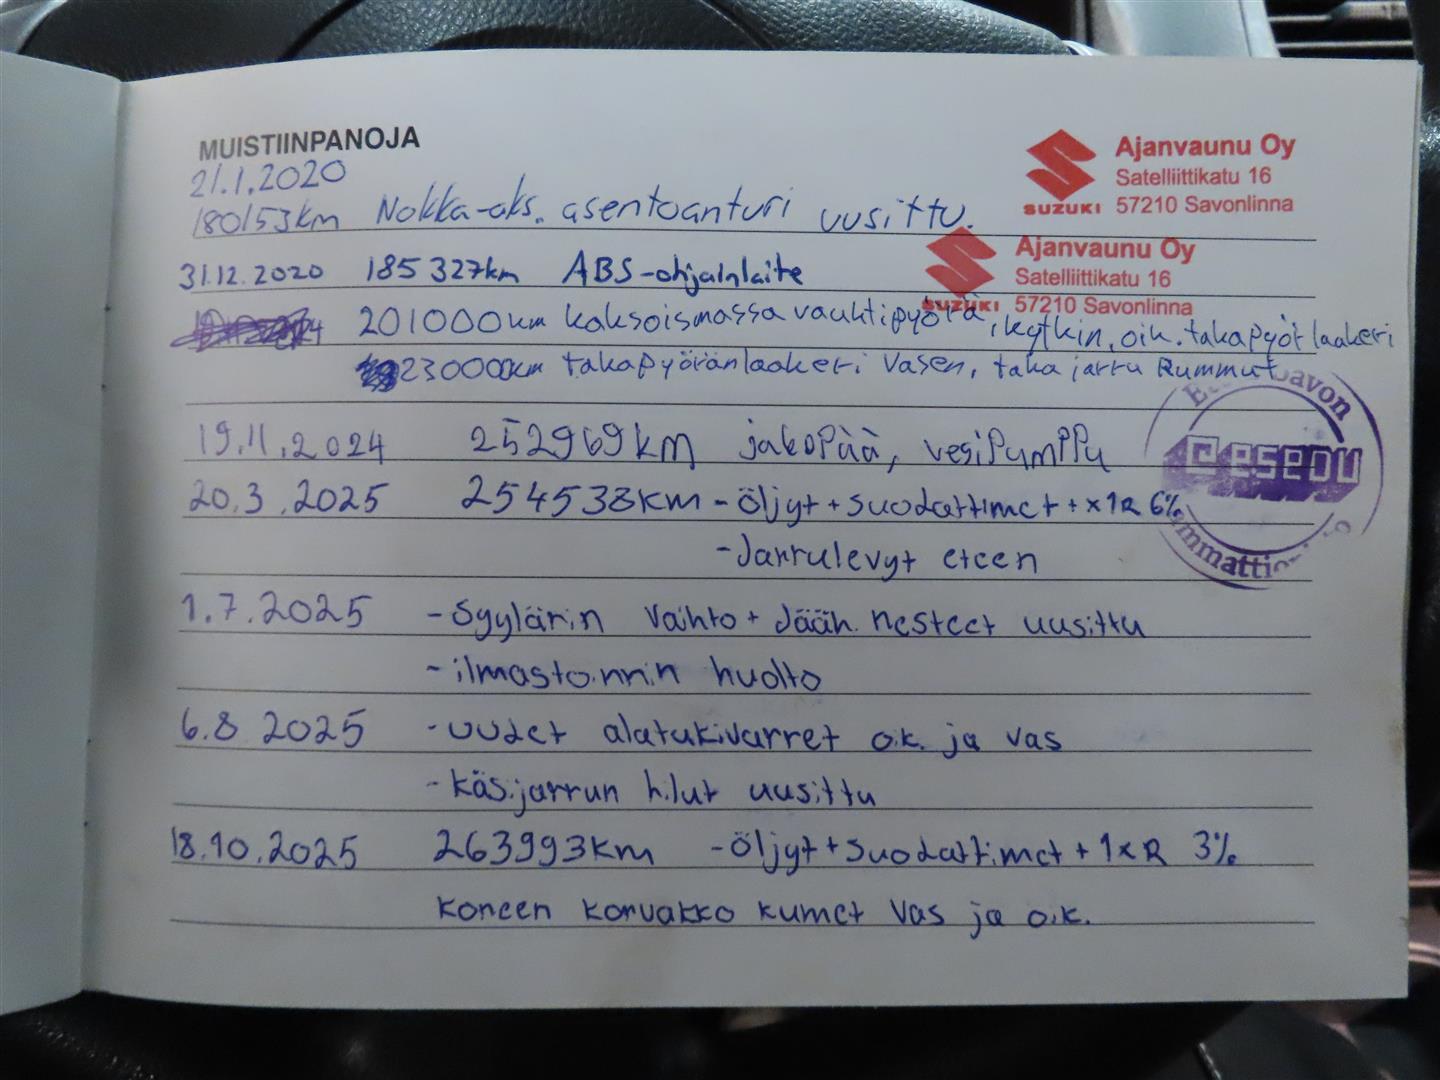 MUISTIINPANOJA
21.1.2020
180153km Nokka-aks. asentoanturi uusittu.
Ajanvaunu Oy
Satelliittikatu 16
SUZUKI 57210 Savonlinna
31.12.2020 185 327km ABS-ohjainlaite
Ajanvaunu Oy
Satelliittikatu 16
SUZUKI 57210 Savonlinna
201000km kaksoismassa vauhtipyörä, kytkin, oik. takapyör laakeri
230000km takapyöränlaakeri vasen, taka jarru Rummut
19.11.2024 252969km jakopää, vesipumppu
Savon
esedu
20.3.2025 254538km - öljyt + suodattimet + x1R 6%
-Jarrulevyt eteen
1.7.2025 -Syylärin vaihto + Jääh. nesteet uusittu
-ilmastoinnin huolto
6.8 2025 -uudet alatukivarret oik. ja vas
-käsijarrun hilut uusittu
18.10.2025 263993km -öljyt + suodattimet + 1xR 3%
koneen korvakko kumet vas ja oik.